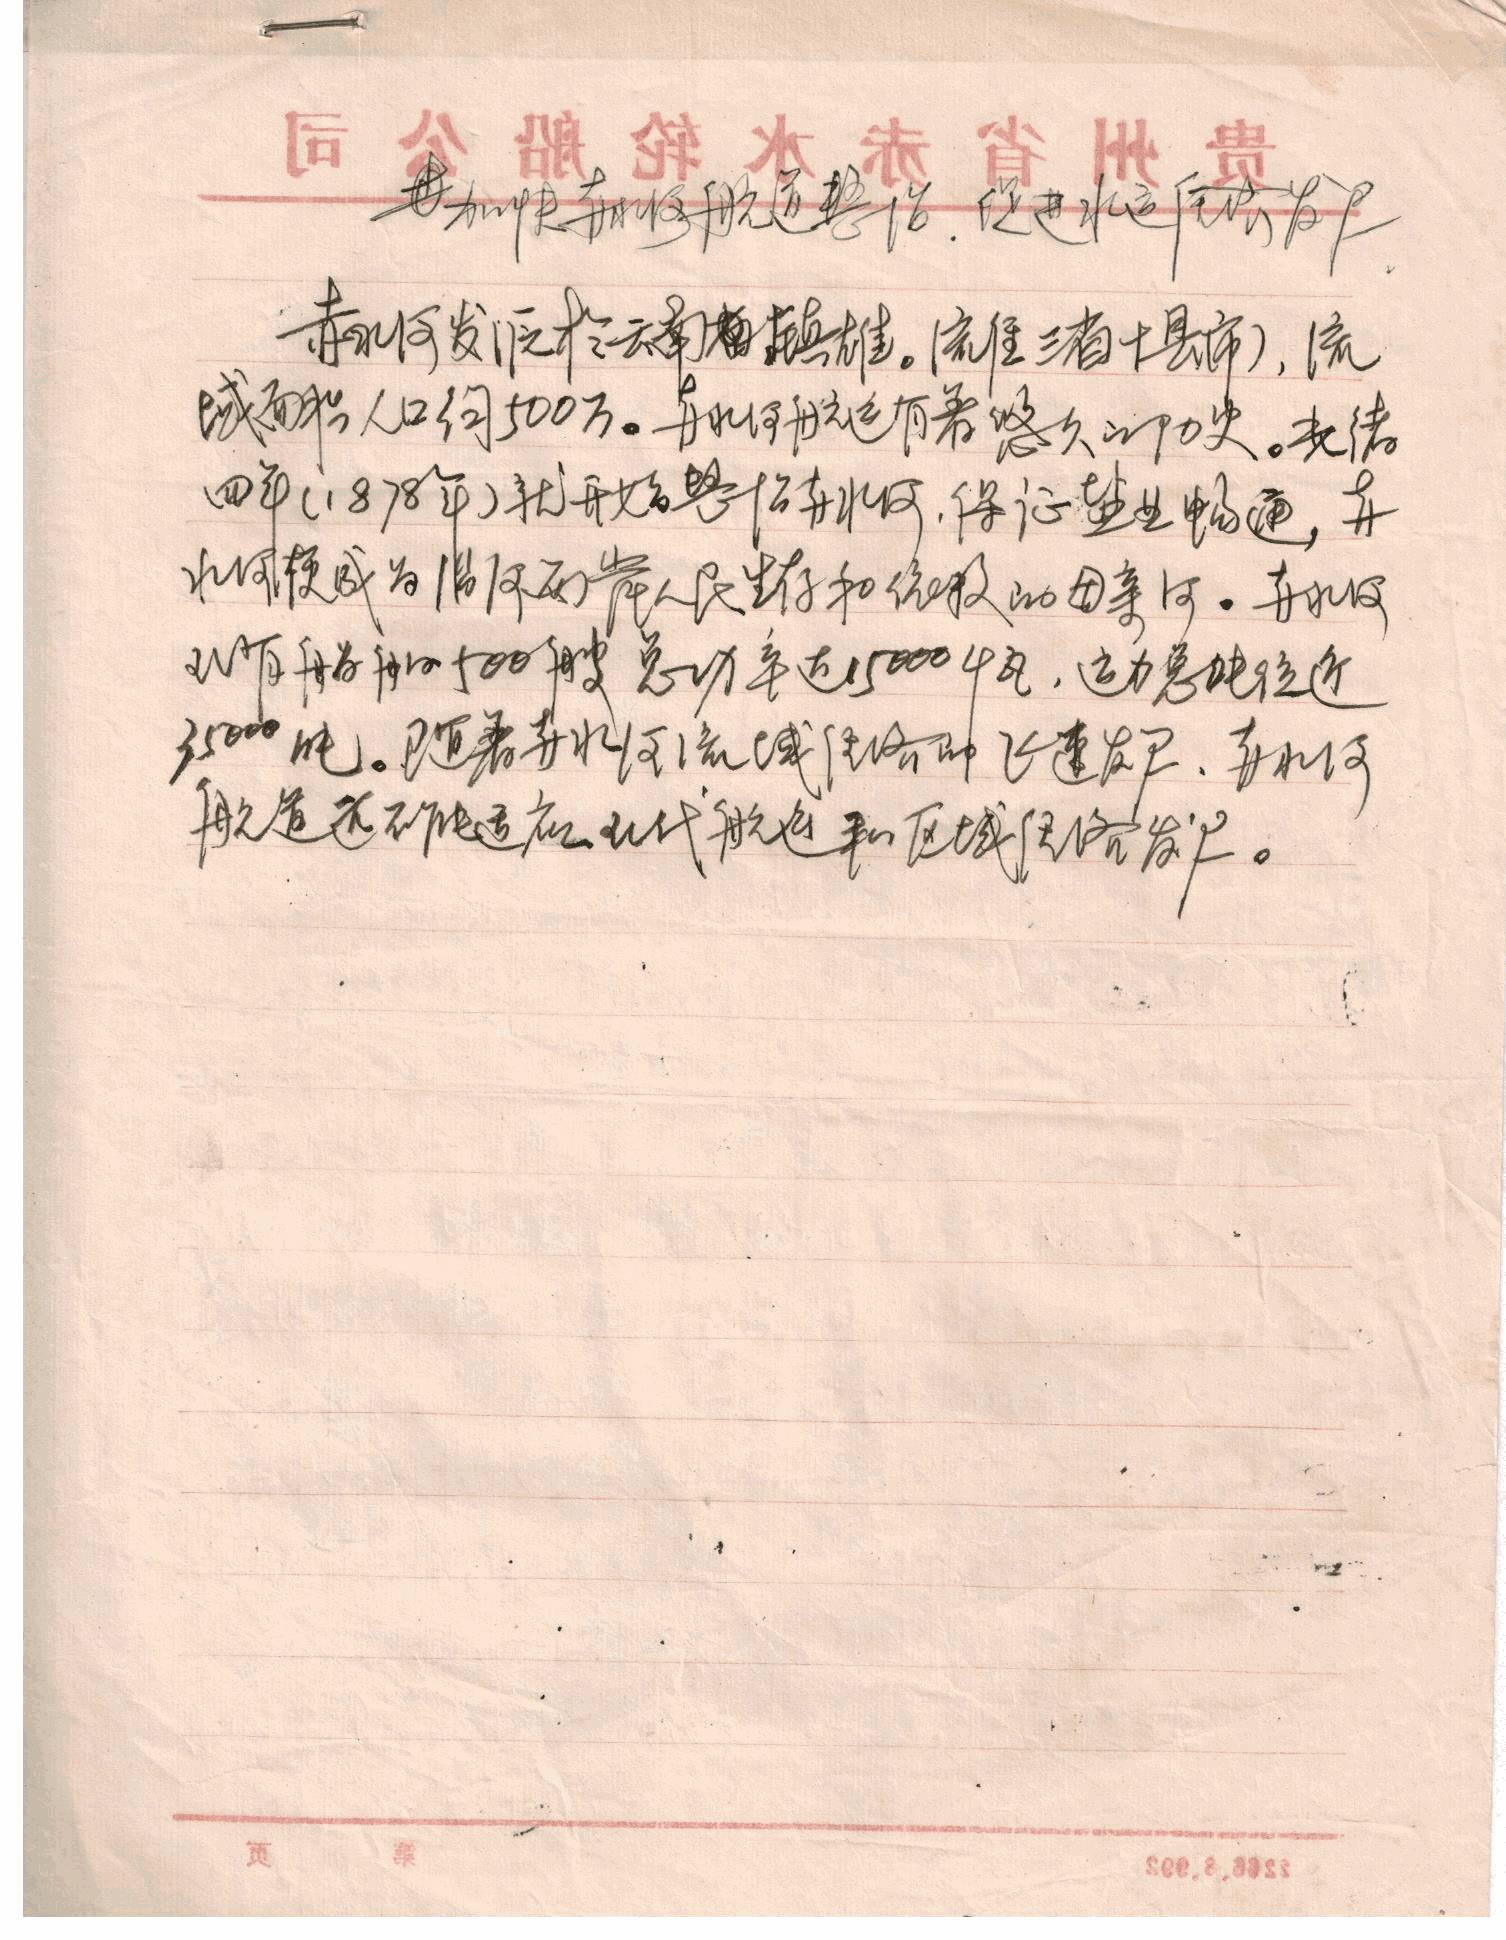 贵州省赤水轮船公司
加快赤水河航道整治,促进水运经济发展
赤水河发源于云南镇雄。流经三省十县(市),流
域面积人口约500万。赤水河航运有着悠久的历史。光绪
四年(1878年)就开始整治赤水河,保证盐业畅通,赤
水河便成为沿河两岸人民生存和依赖的母亲河。赤水河
现有船舶500艘 总功率达15000千瓦,运力总吨位近
35000吨。随着赤水河流域经济的飞速发展,赤水河
航道还不能适应现代航运和区域经济发展。
第 页